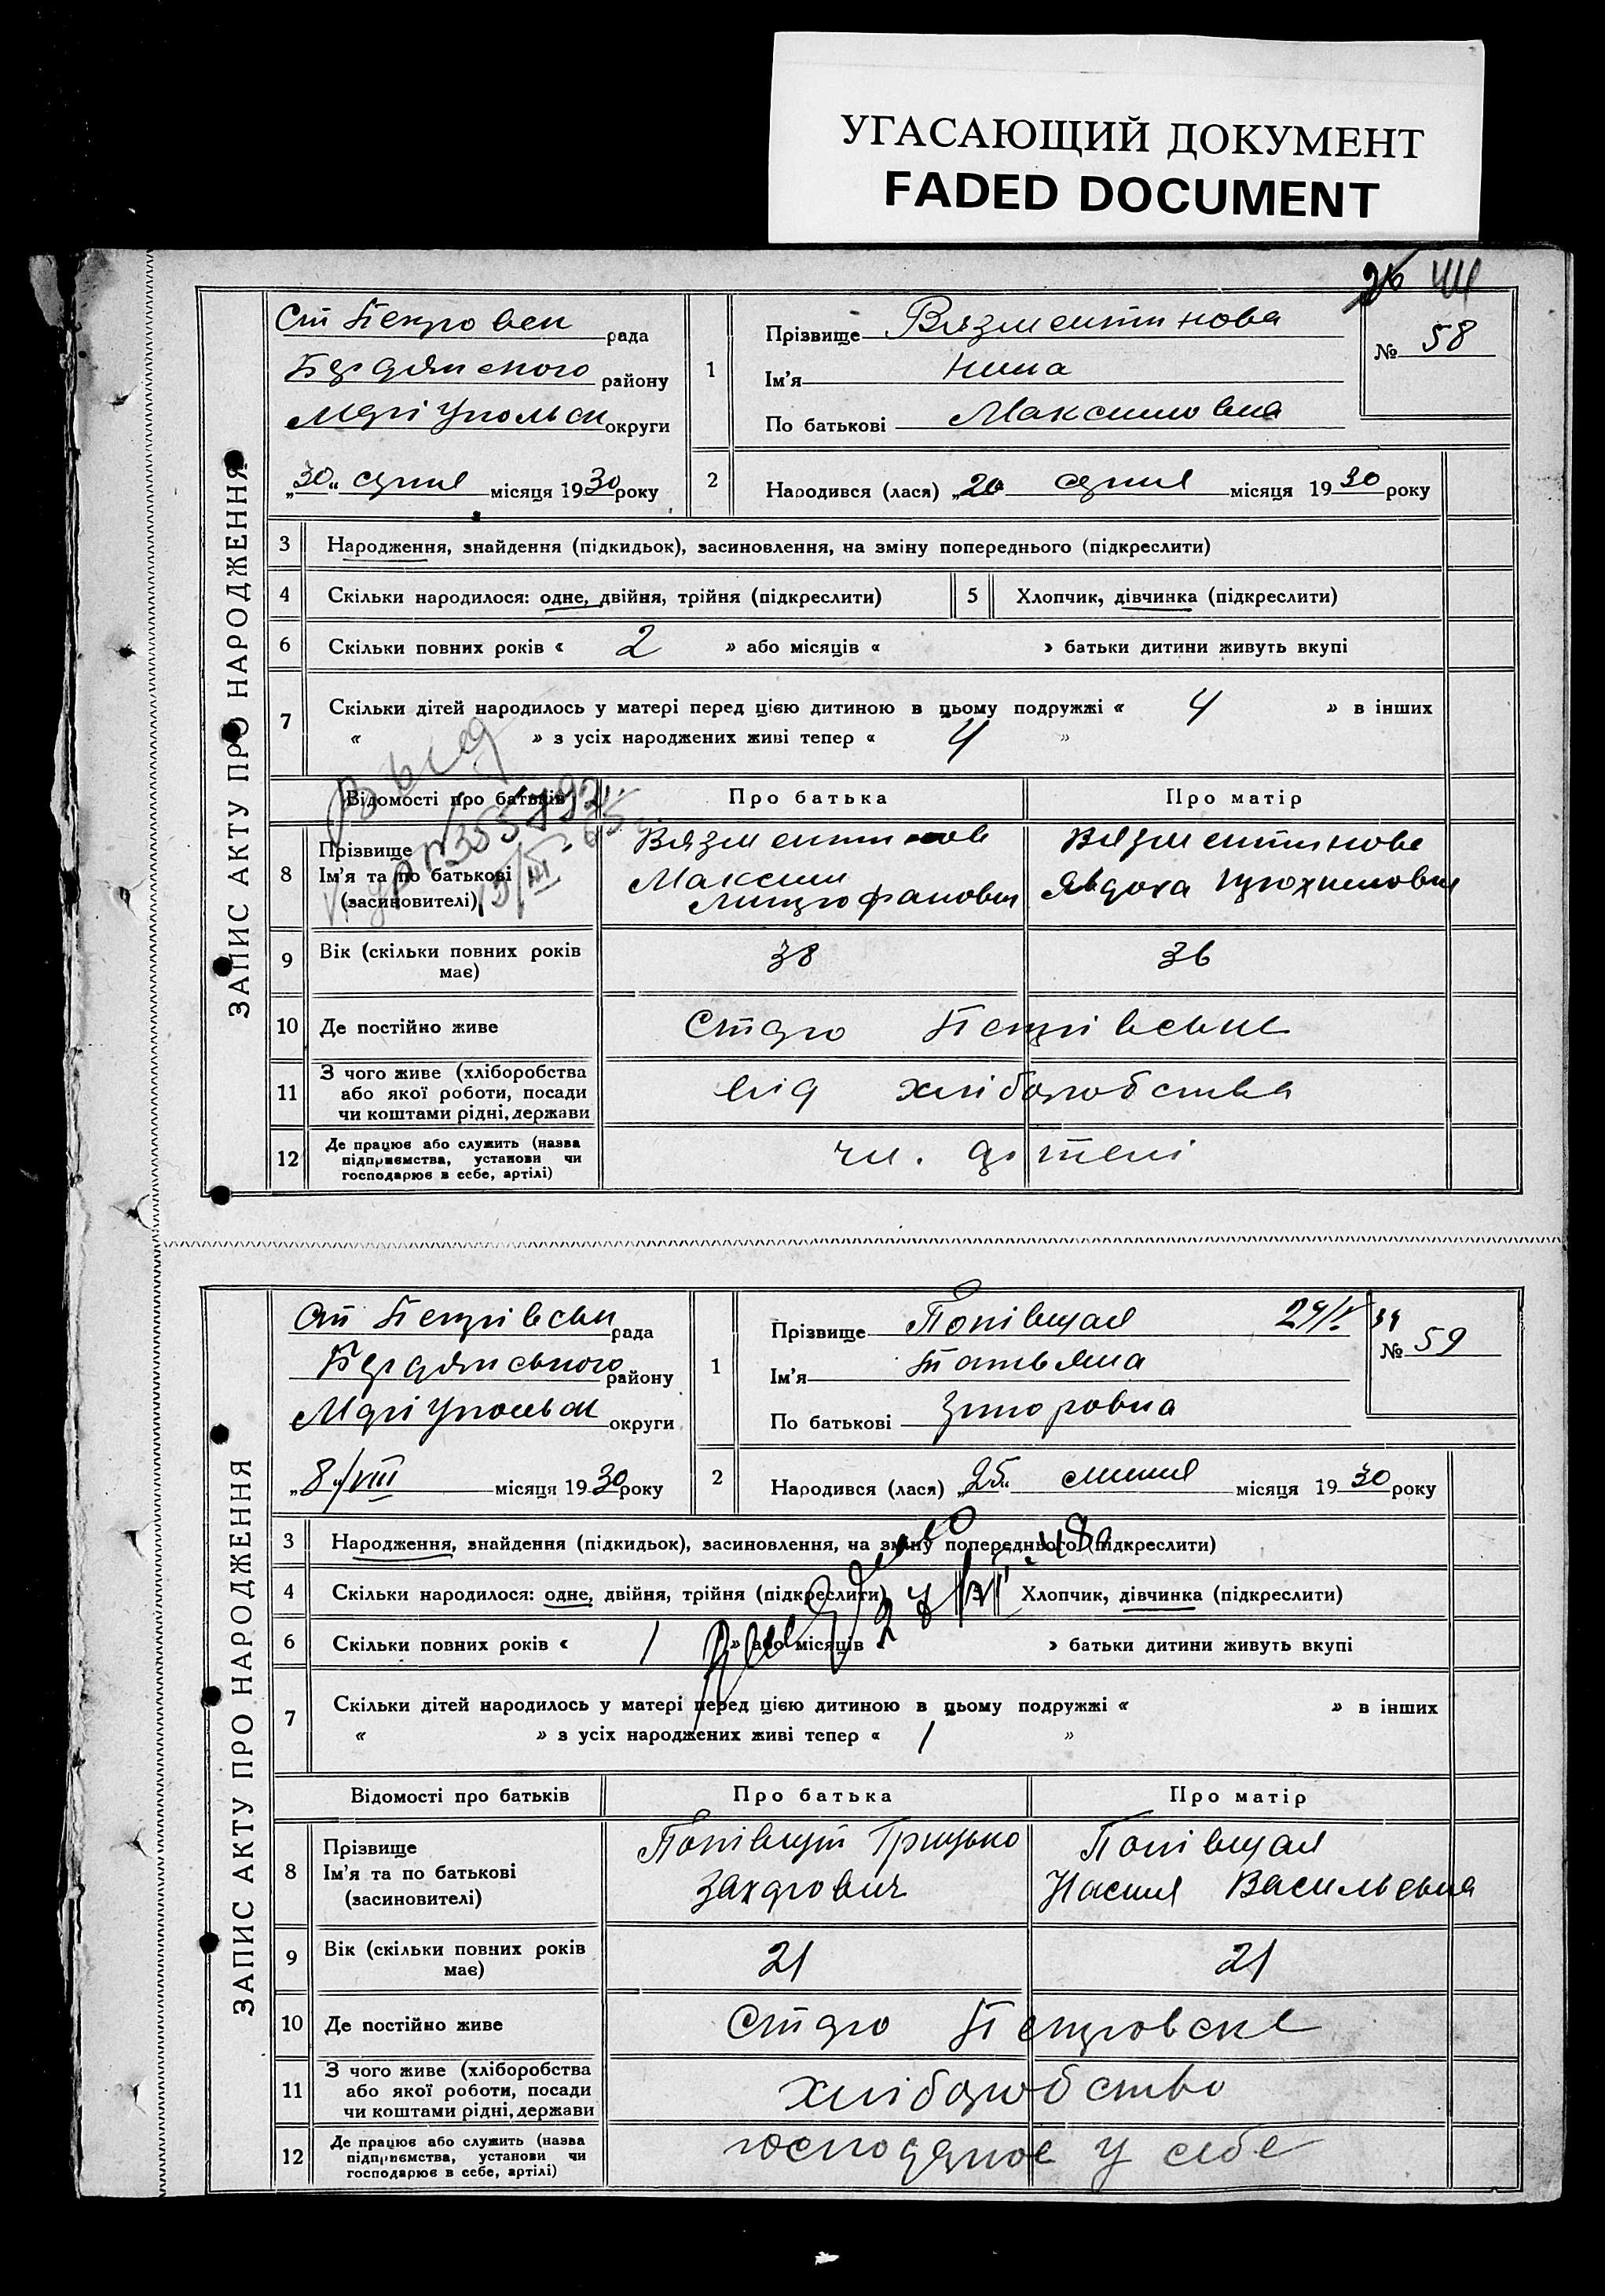 УГАСАЮЩИЙ ДОКУМЕНТ
FADED DOCUMENT
ЗАПИС АКТУ ПРО НАРОДЖЕННЯ
Ст Петровск рада
Бердянського району
Маріупольск округи
„30“ серпня місяця 1930 року
1
Прізвище Вязментинова
Ім’я Нина
По батькові Максимовна
№ 58
2
Народився (лася) „20 серпня місяця 1930 року
3 Народження, знайдення (підкидьок), засиновлення, на зміну попереднього (підкреслити)
4 Скільки народилося: одне, двійня, трійня (підкреслити) 5 Хлопчик, дівчинка (підкреслити)
6 Скільки повних років « 2 » або місяців « » батьки дитини живуть вкупі
7 Скільки дітей народилось у матері перед цією дитиною в цьому подружжі « 4 » в інших
« » з усіх народжених живі тепер « 4 »
Відомості про батьків Про батька Про матір
8 Прізвище
Ім’я та по батькові
(засиновителі)
Вязментинов
Максим
Митрофанович
Вязментинова
Явдоха Трохимовна
9 Вік (скільки повних років має) 38 36
10 Де постійно живе Старо Петрівське
11 З чого живе (хліборобства
або якої роботи, посади
чи коштами рідні, держави
від хліборобства
12 Де працює або служить (назва
підприємства, установи чи
господарює в себе, артілі)
чл. артелі
ЗАПИС АКТУ ПРО НАРОДЖЕННЯ
Ст Петрівськ рада
Бердянського району
Маріупольськ округи
„8“/VIII місяця 1930 року
1
Прізвище Попівщая
Ім’я Татьяна
По батькові
№ 59
2
Народився (лася) „25“ липня місяця 1930 року
3 Народження, знайдення (підкидьок), засиновлення, на зміну попереднього (підкреслити)
4 Скільки народилося: одне, двійня, трійня (підкреслити) Хлопчик, дівчинка (підкреслити)
6 Скільки повних років « 1 » або місяців « » батьки дитини живуть вкупі
7 Скільки дітей народилось у матері перед цією дитиною в цьому подружжі « » в інших
« » з усіх народжених живі тепер « 1 »
Відомості про батьків Про батька Про матір
8 Прізвище
Ім’я та по батькові
(засиновителі)
Грицько
Захарович
Попівщая
Настя Васильевна
9 Вік (скільки повних років має) 21 21
10 Де постійно живе Старо Петровске
11 З чого живе (хліборобства
або якої роботи, посади
чи коштами рідні, держави
хліборобство
12 Де працює або служить (назва
підприємства, установи чи
господарює в себе, артілі)
господарює у себе